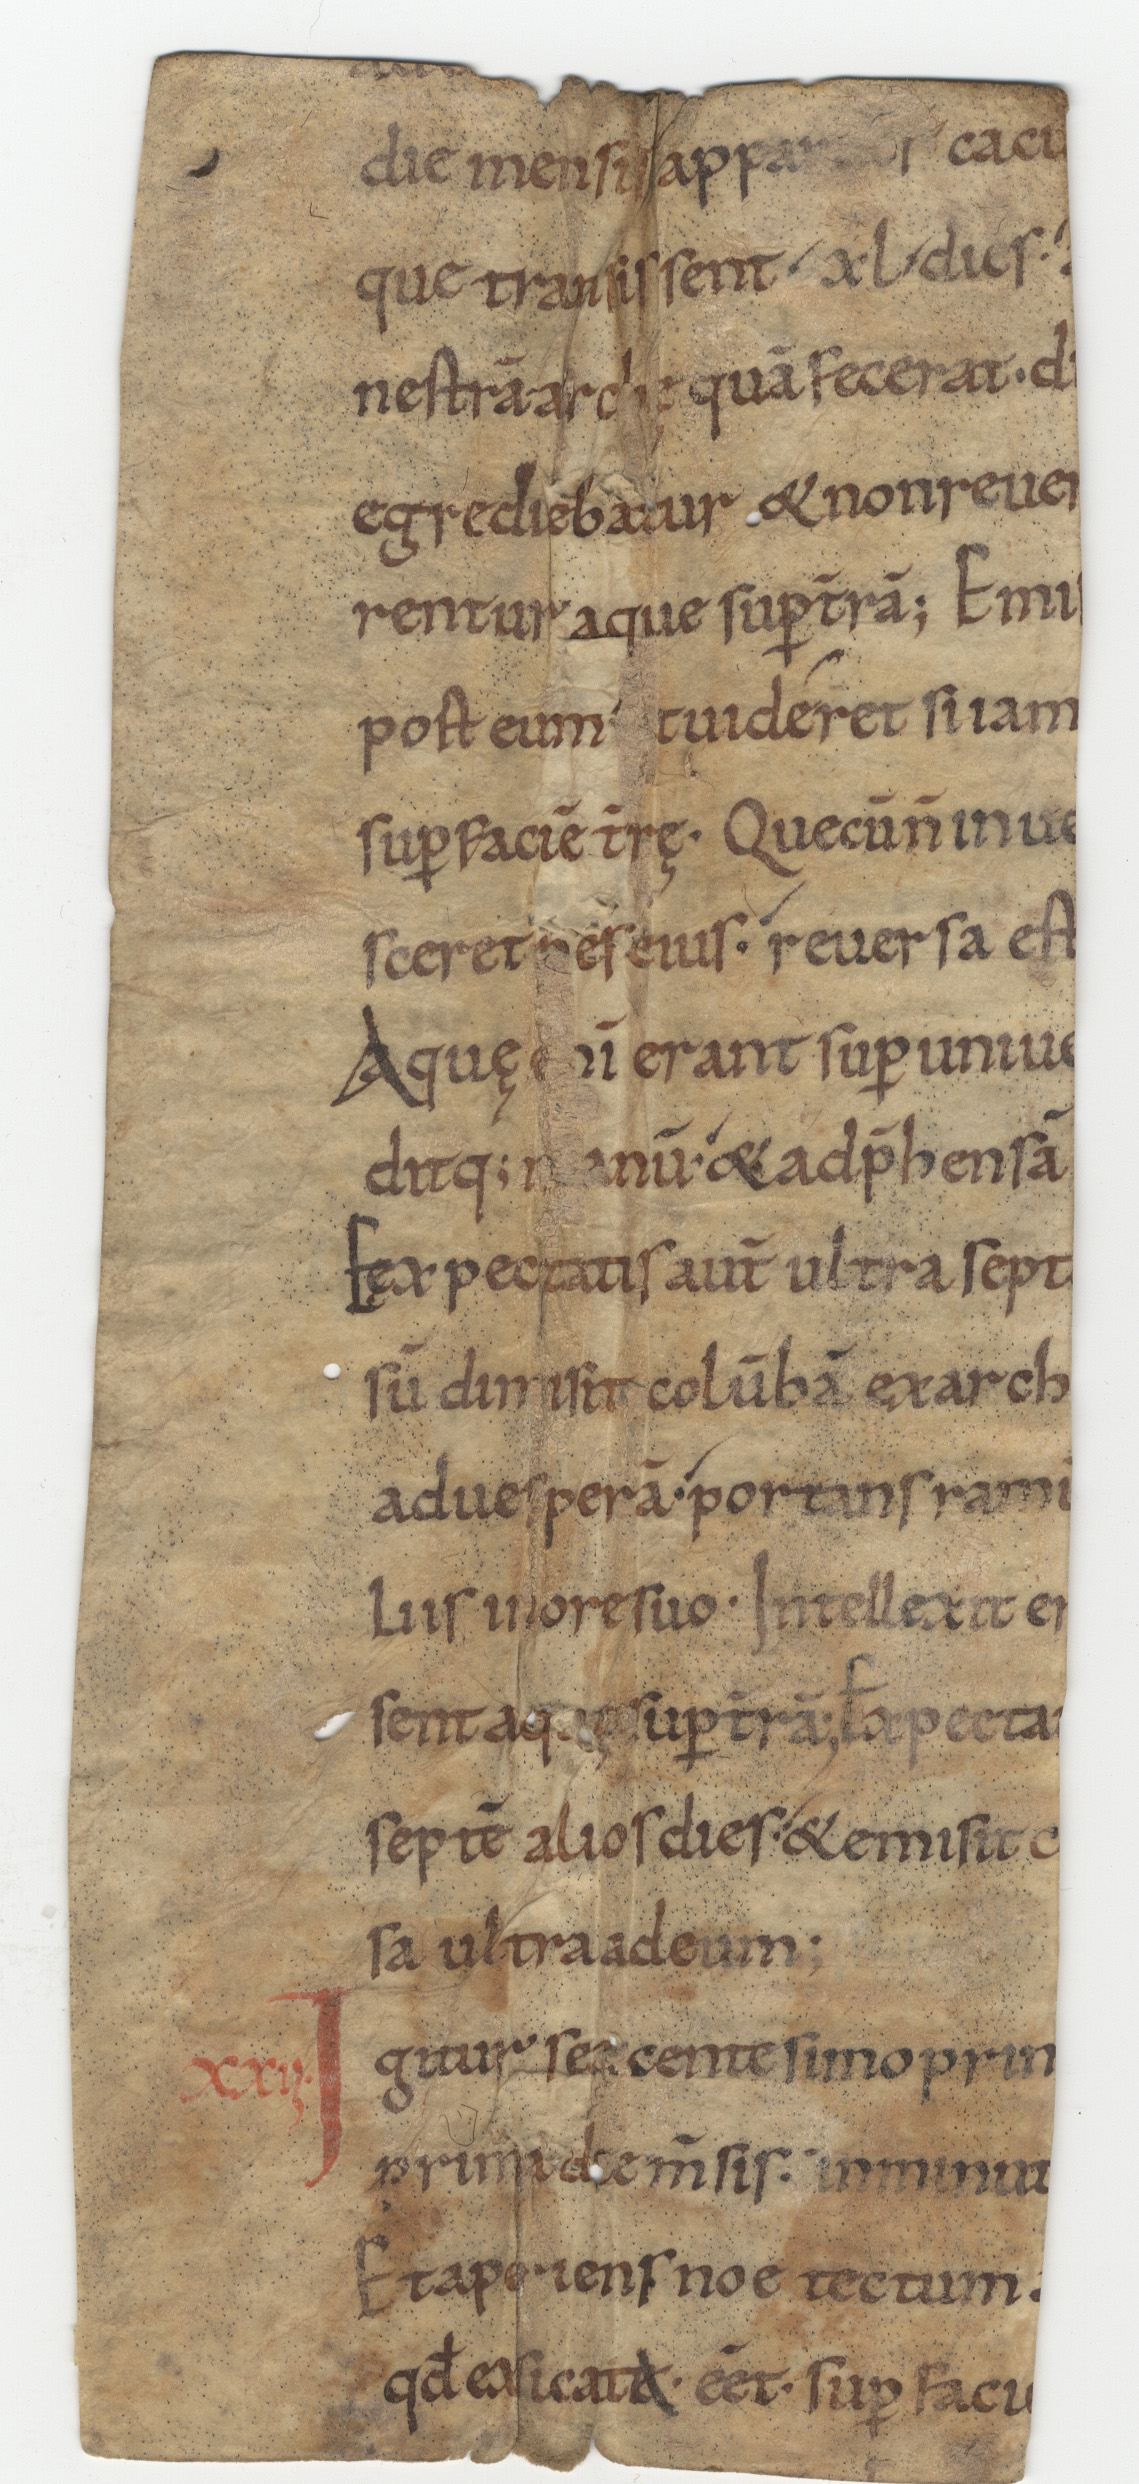 die mensis apparuer cacu
que transissent xl dies.
nestrā arche quā fecerat. di
egrediebatur & non reuer
rentur aque sup t̄rā; Emi
post eum ut uideret si iam
sup faciē t̄rę. Que cū n̄ inue
sceret pes eius. reuersa est
Aquę eni erant sup uniue
ditq; manū. & adp̄hensā
Eexpectatis aut̄ ultra sept
sū dimisit colūbā ex arch
ad uesperā. portans ramū
Luis in ore suo. Intellexit er
sent aque sup t̄rā; Expectau
septē alios dies. & emisit c
sa ultra ad eum;
xxii. Igitur sexcentesimo prim
prima die m̄sis. inminut
Et aperiens noe tectum.
qđ exsiccata ēet. sup facie